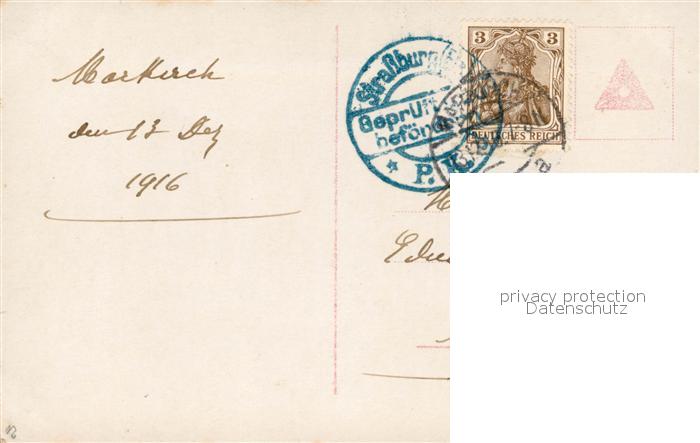 Markirch
den 13 Dez
1916
Straßburg
Geprüft
beförd
P. K.
3 3
DEUTSCHES REICH
privacy protection
Datenschutz